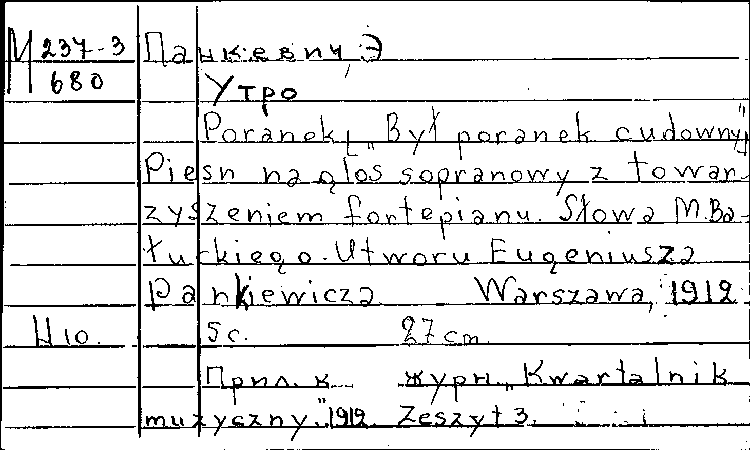 М 237-3 Панкевич, Э
680
Утро
Poranek [„Był poranek cudowny"]
Piesn na glos sopranowy z towar-
zyszeniem fortepianu. Słowa M. Ba-
łuckiego. Utworu Eugeniusza
Pankiewicza Warszawa, 1912
Н 10. 5 с. 27 cm
Прил. к журн. „Kwartalnik
muzyczny". 1912. Zeszyt 3.